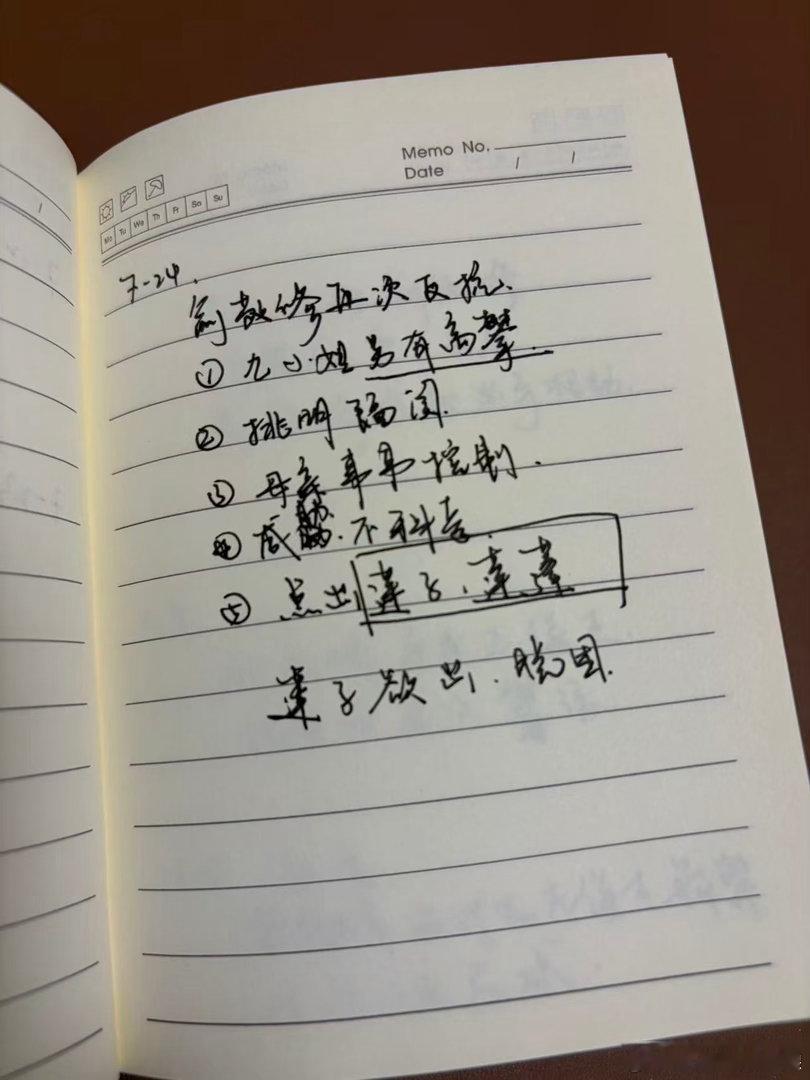 Memo No.
Date / /
Mo Tu We Th Fr Sa Su
7-24.
敖修再次反抗.
① 九小姐另有高攀.
② 挑明隔阂.
③ 母亲事事控制.
④ 威胁.不科吉.
⑤ 点出莲子.莲蓬
莲子欲出.脱困.